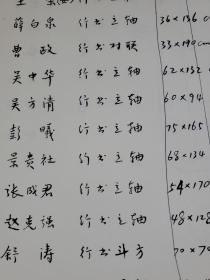 薛白泉 行书立轴 36×136 c
曹政 行书对联 33×190cm
吴中华 行书立轴 62×132
吴方清 行书立轴 60×94
彭曦 行书立轴 75×165
景亮社 行书立轴 68×134
张成君 行书立轴 54×170
赵克强 行书立轴 48×128
舒涛 行书斗方 70×70